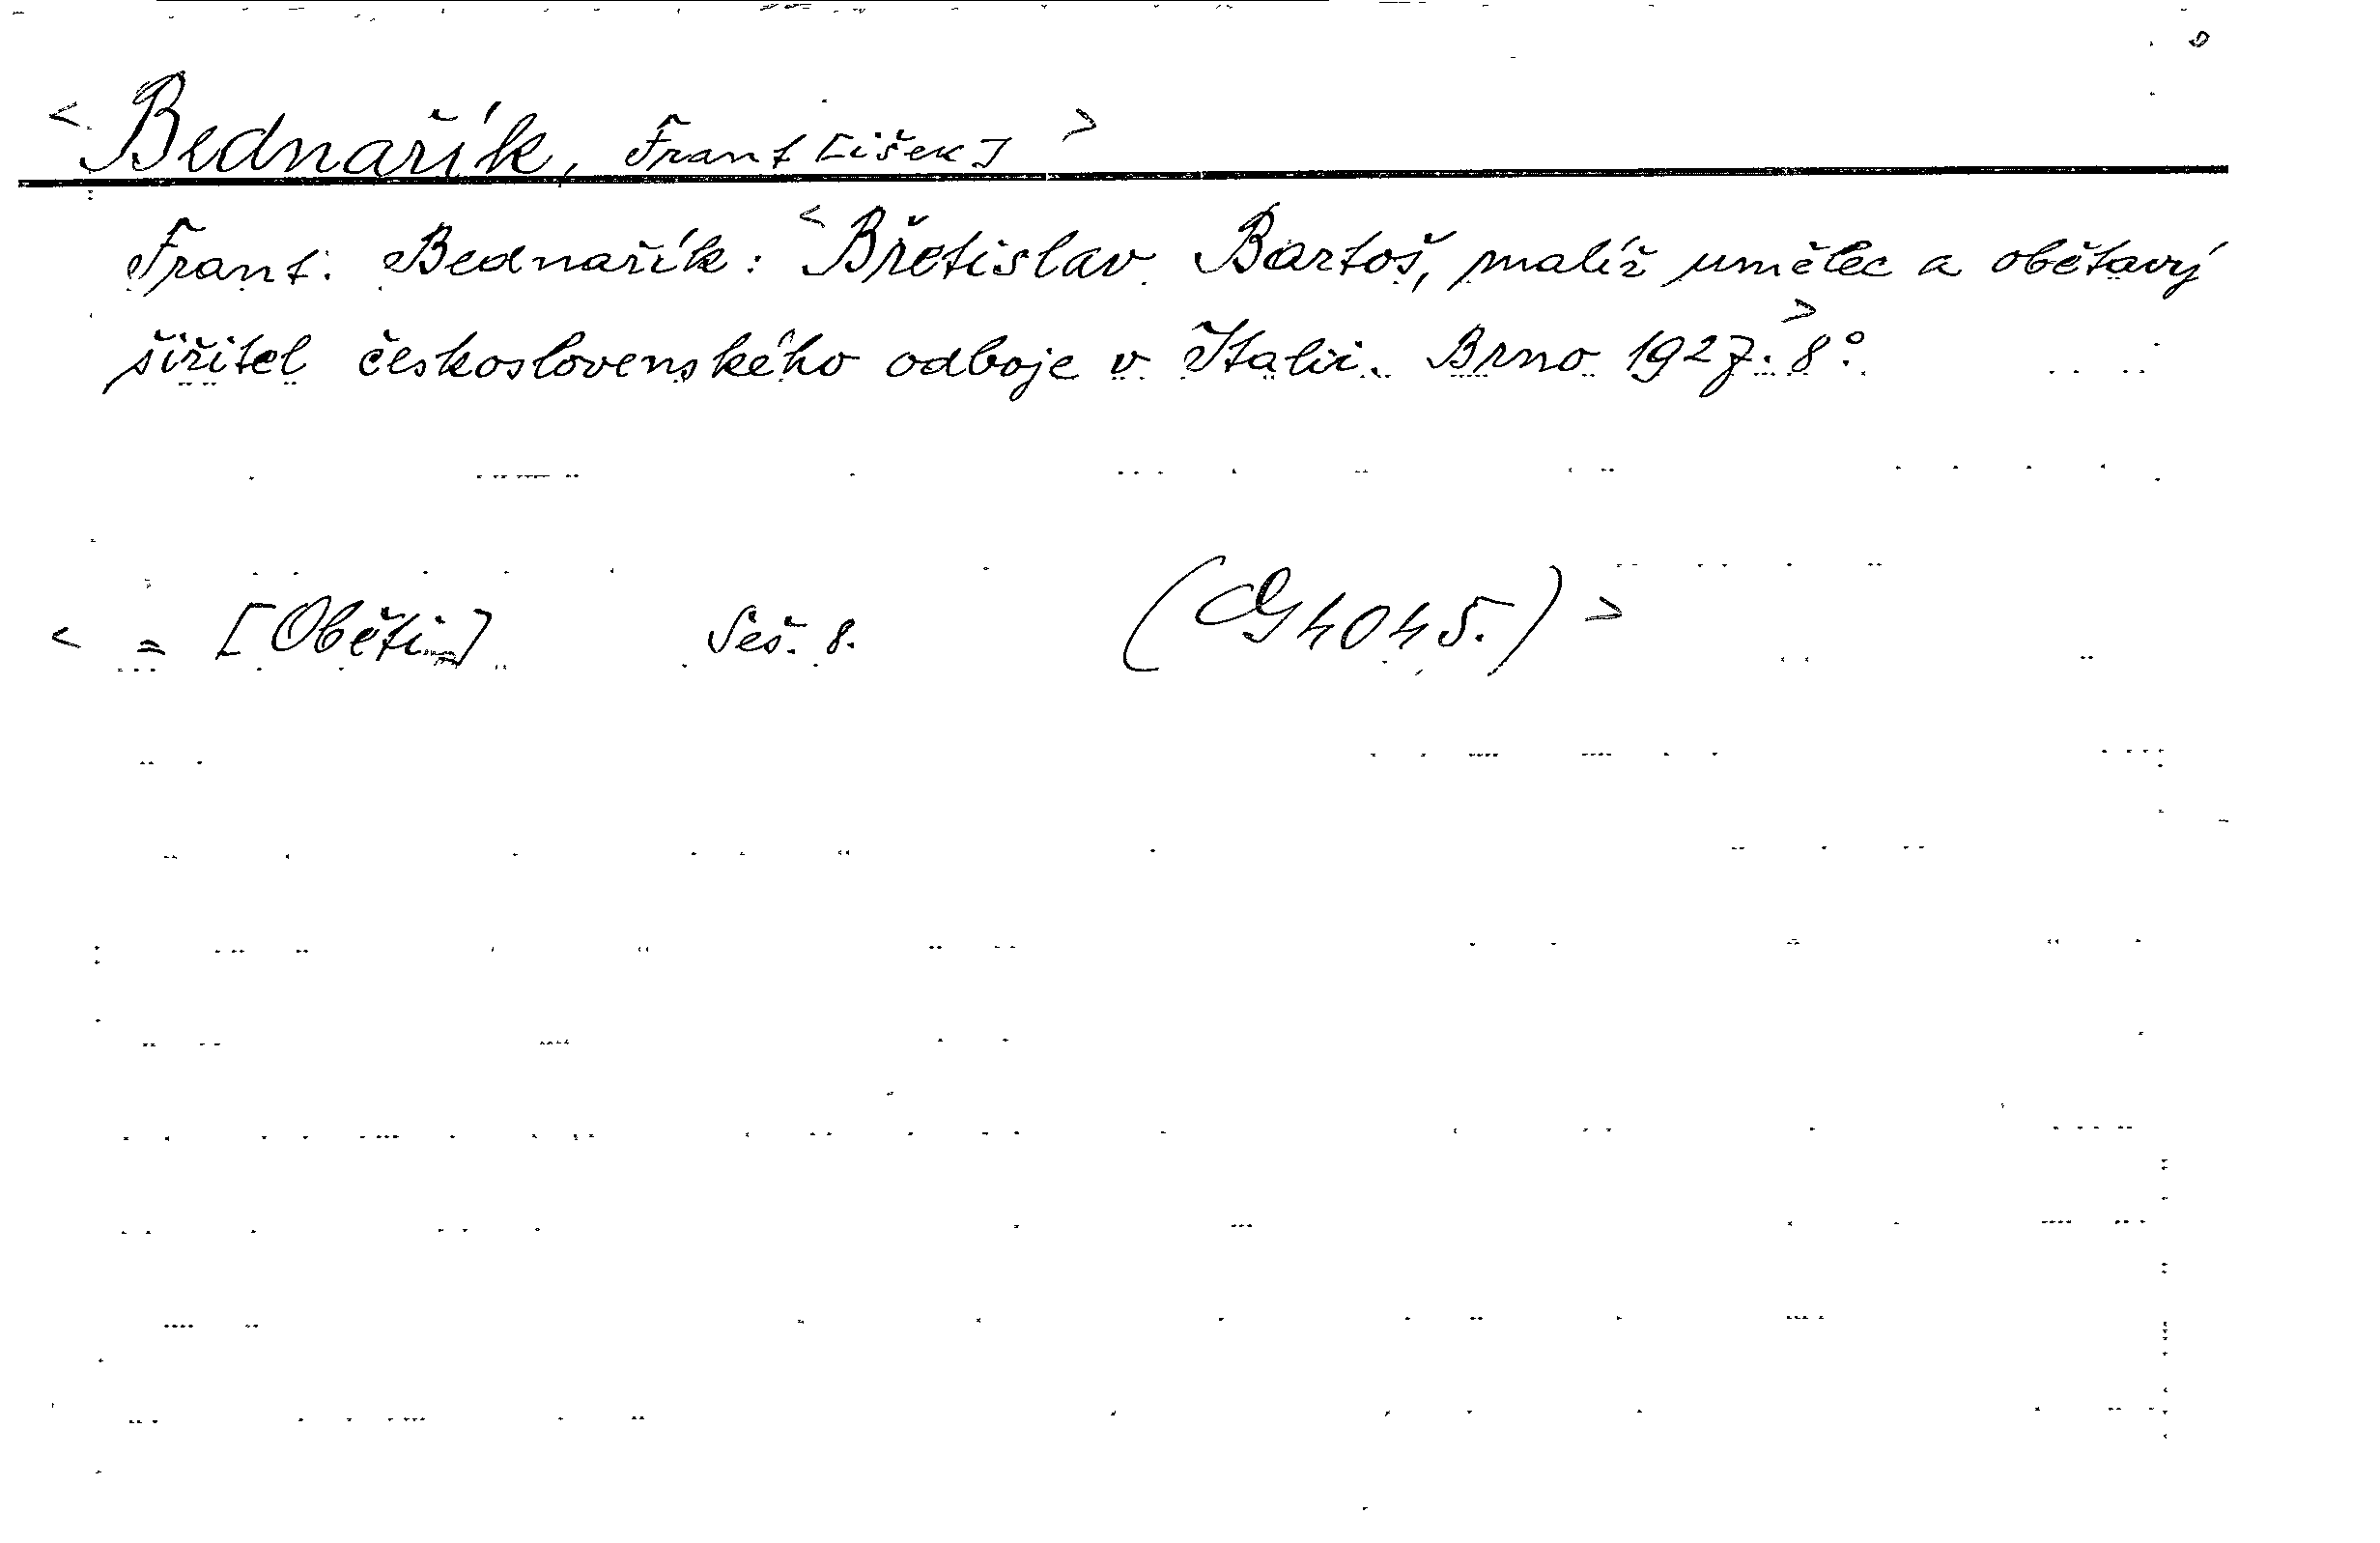 < Bednařík, Frant[išek] >
Frant. Bednařík: < Břetislav Bartoš, malíř umělec a obětavý
šiřitel československého odboje v Italii. Brno 1927. > 8°.
< = [Oběti] Seš. 8. (G 4045.) >